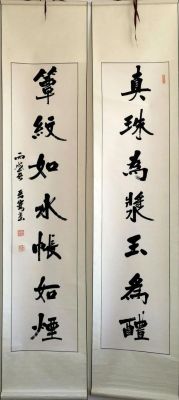 真珠為漿玉為醴
簟紋如水帳如煙